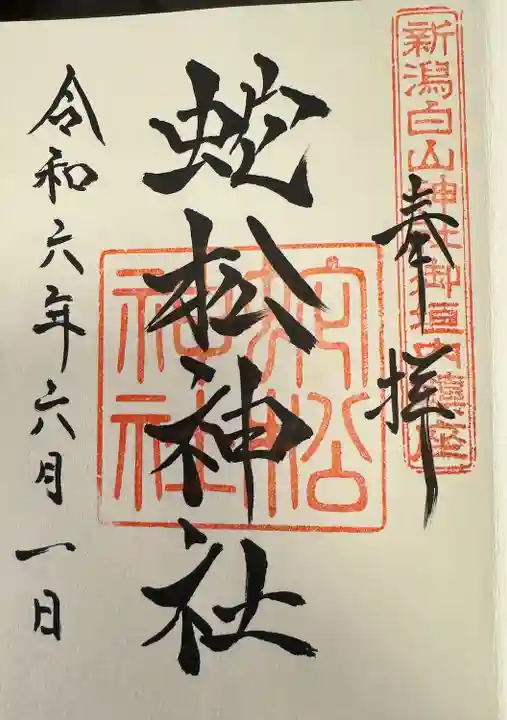 新潟白山神社御垣内鎮座
奉拝
蛇松神社
蛇松
神社
令和六年六月一日